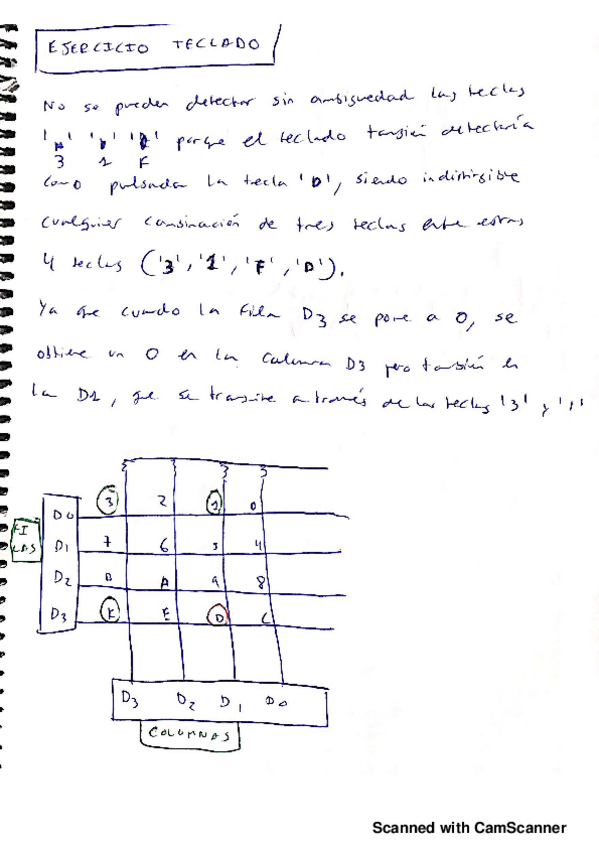 EJERCICIO TECLADO
No se pueden detectar sin ambiguedad las teclas
porque el teclado también detectaría
3 1 F
como pulsada la tecla 'D', siendo indistinguible
cualquier combinación de tres teclas entre estas
4 teclas ('3', '1', 'F', 'D').
Ya que cuando la fila D3 se pone a 0, se
obtiene un 0 en la columna D3 pero también en
la D1, que se transmite a través de las teclas '3' y '1'
D0 3 2 1 0
FILAS D1 7 6 5 4
D2 B A 9 8
D3 F E D C
D3 D2 D1 D0
COLUMNAS
Scanned with CamScanner